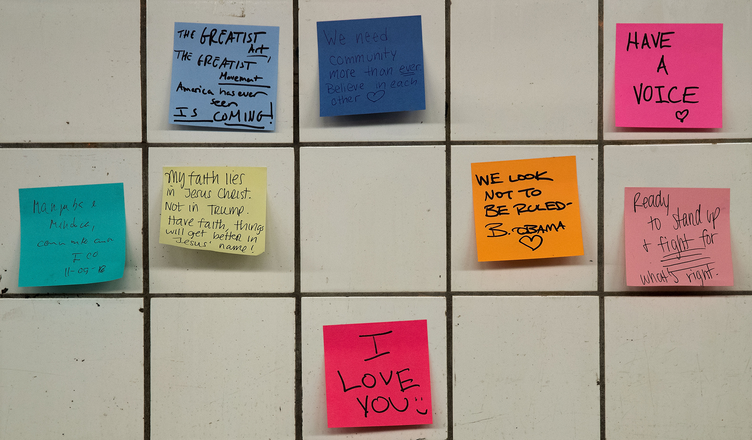 THE GREATIST
Art,
THE GREATIST
Movement
America has ever
seen
IS COMING!
We need
community
more than ever
Believe in each
other ♡
HAVE
A
VOICE
♡
My faith lies
in Jesus Christ.
Not in Trump.
Have faith, things
will get better in
Jesus' name!
WE LOOK
NOT TO
BE RULED-
B. OBAMA
♡
Ready
to stand up
+ fight for
what's right.
I
LOVE
YOU :)